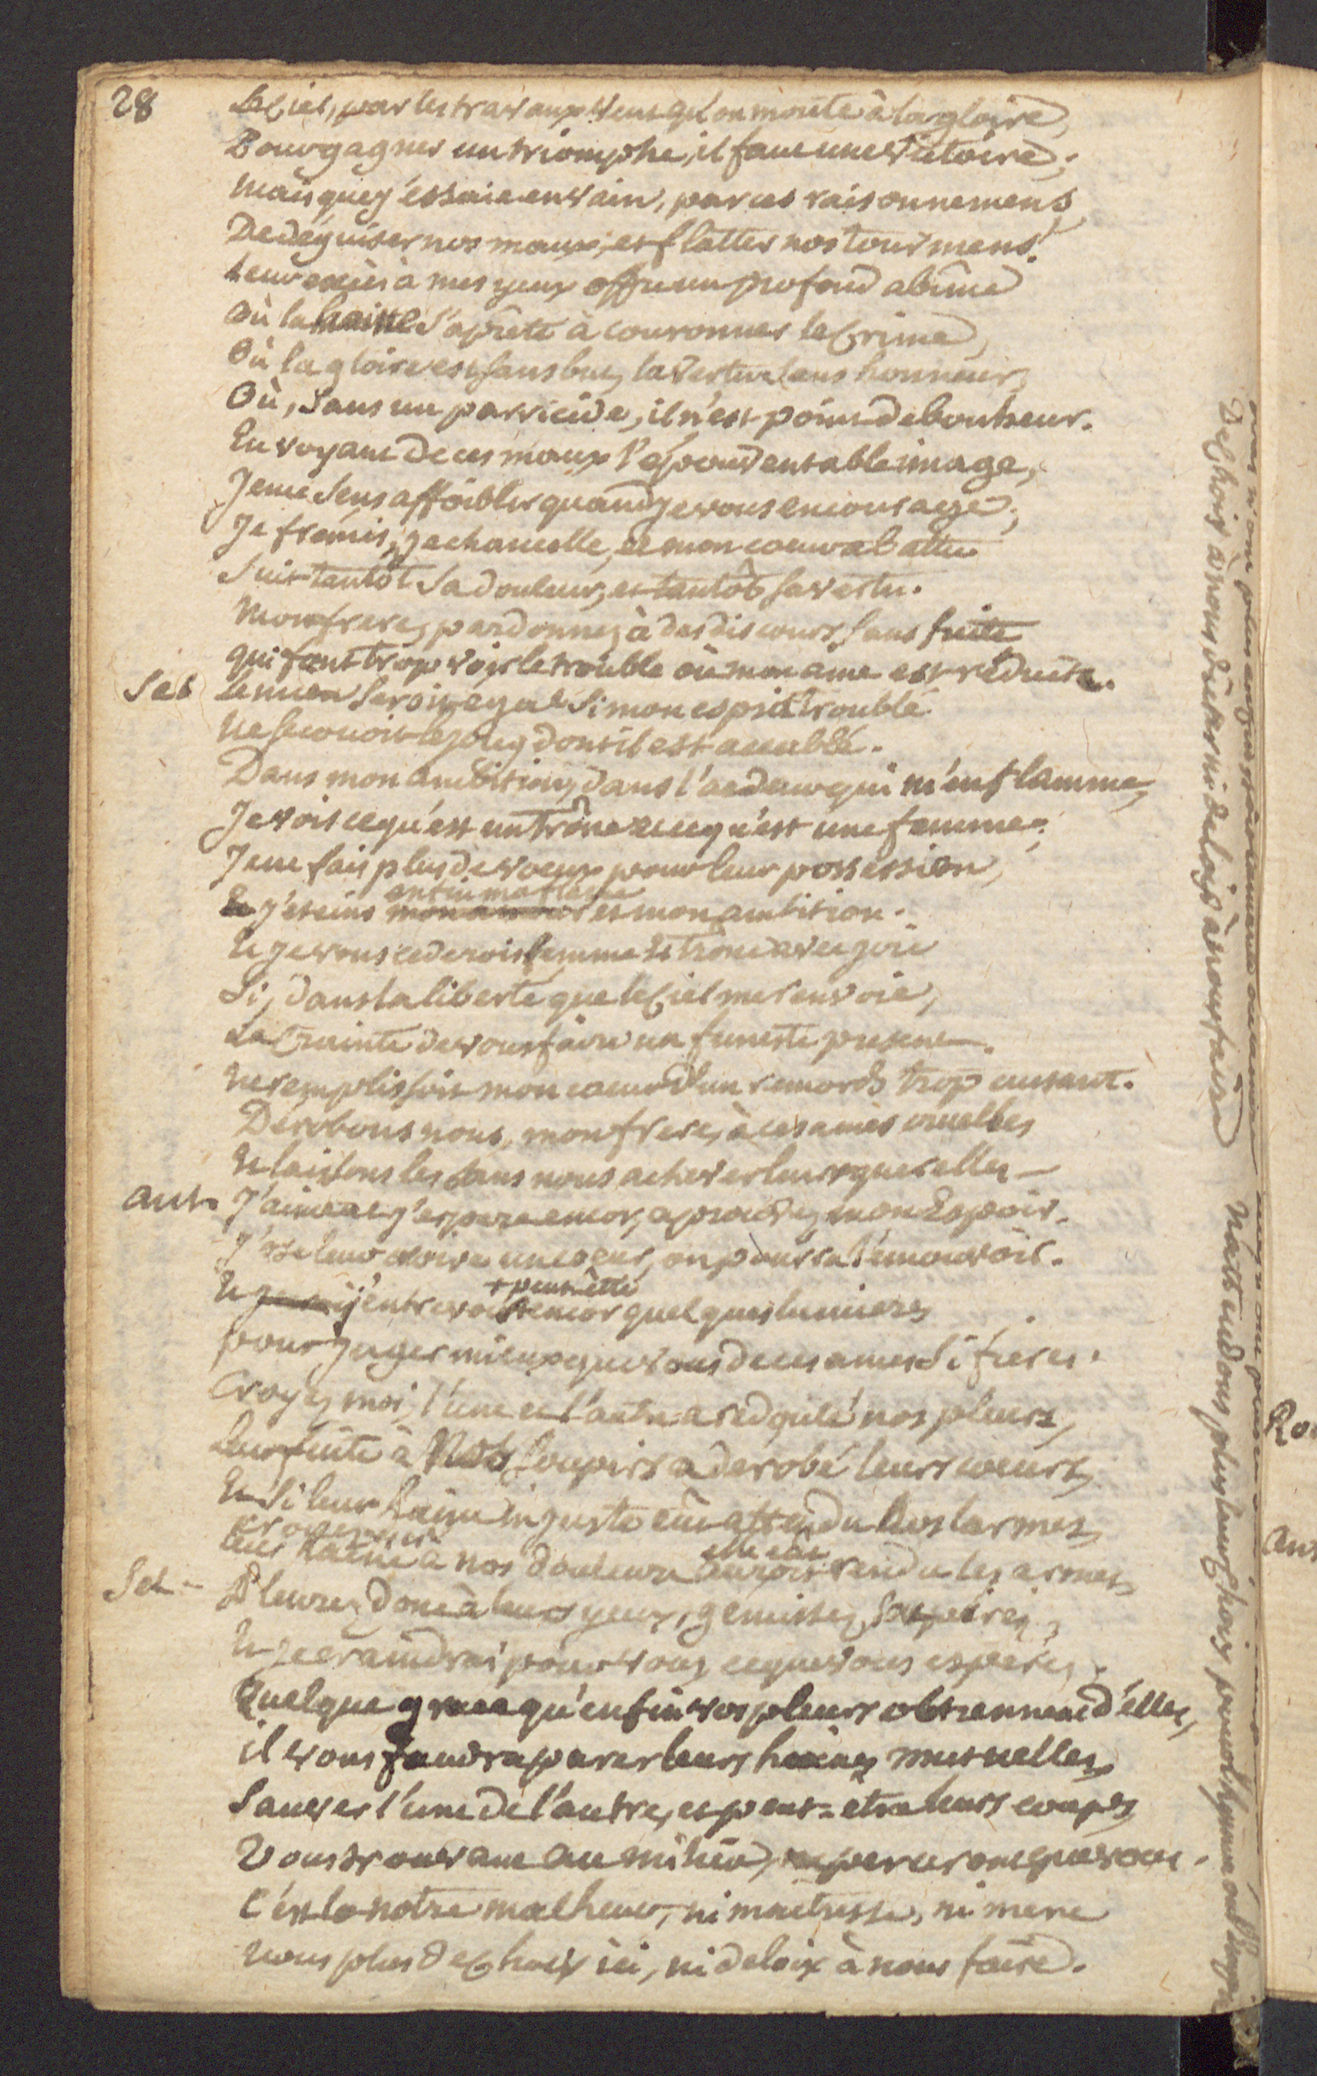 28
Le Ciel, par les travaux veut qu'on monte à la gloire,
Pour gagner un triomphe, il faut une victoire;
mais que j'essaie en vain, par ces raisonnemens
De déguiser nos maux, et flatter nos tourmens!
Leur excès à mes yeux offre un profond abime
Où la haine s'aprête à couronner le Crime,
Où la gloire est sans but, la vertu sans honneur,
Où, sans un parricide, il n'est point de bonheur.
En voyant de ces maux l'épouventable image,
Je me sens affoiblir quand je vous encourage;
Je fremis, je chancelle, et mon coeur abattu
Suit tantôt sa douleur, et tantôt sa vertu.
Mon frere, pardonnez à des discours sans suite
qui font trop voir le trouble où mon ame est réduite.
Sel Le mien seroit egal si mon esprit troublé
Ne secouoit le joug dont il est accablé.
Dans mon ambition, dans l'ardeur qui m'enflamme,
Je vois ce qu'est un trône et ce qu'est une femme;
Je ne fais plus de voeux pour leur possession,
enfin ma flame
Et j'eteins mon amour et mon ambition.
Et je vous cederois femme et trône avec joie
Si, dans la liberté que le Ciel me renvoie,
La Crainte de vous faire un funeste present
Ne remplissoit mon coeur d'un remords trop cuisant.
Dérobons nous, mon frere, à ces ames cruelles
Et laissons les sans nous achever leurs querelles
ant. J'aime et j'espere encor, aprouvez mon Espoir.
J'ose leur croire un coeur, on pourra l'émouvoir.
+ peut-être
Et j'entrevois encor quelques lumieres
pour juger mieux que vous de ces ames si fieres.
Croyez moi, l'une et l'autre a redouté nos pleurs,
Leur fuite à Nos soupirs a dérobé leurs coeurs,
Et si leur haine injuste eût attendu Nos larmes,
elle eût
Leur haine à nos douleurs auroit rendu les armes,
Sel - Pleurez donc à leurs yeux, gemissez, soupirez,
Et je craindrai pour vous ce que vous espérez.
Quelque grace qu'enfin vos pleurs obtiennent d'elles,
il vous faudra parer leurs haines mutuelles,
Sauver l'une de l'autre, et peut-etre leurs coups,
Vous trouvant au milieu, ne perceront que vous.
C'est là notre malheur, ni maitresse, ni mere
nous plus de choix ici, ni de loix à nous faire.
De Choix à nous dicter ni de loix à nous faire
N'attendons plus leur Choix pour
Ant